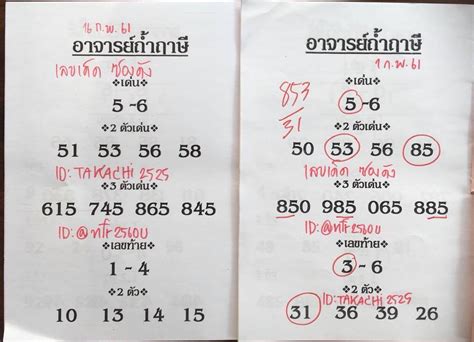 16 ก.พ. 61
อาจารย์ถ้ำฤาษี
เลขเด็ด ซองดัง
❖เด่น❖
5 -6
❖2 ตัวเด่น❖
51 53 56 58
ID:TAKACHI 2525
❖3 ตัวเด่น❖
615 745 865 845
❖เลขท้าย❖
1 - 4
❖2 ตัว❖
10 13 14 15
อาจารย์ถ้ำฤาษี
1 ก.พ. 61
❖เด่น❖
853
31
5 -6
❖2 ตัวเด่น❖
50 53 56 85
เลขเด็ด ซองดัง
❖3 ตัวเด่น❖
850 985 065 885
❖เลขท้าย❖
3 - 6
ID:TAKACHI 2525
❖2 ตัว❖
31 36 39 26